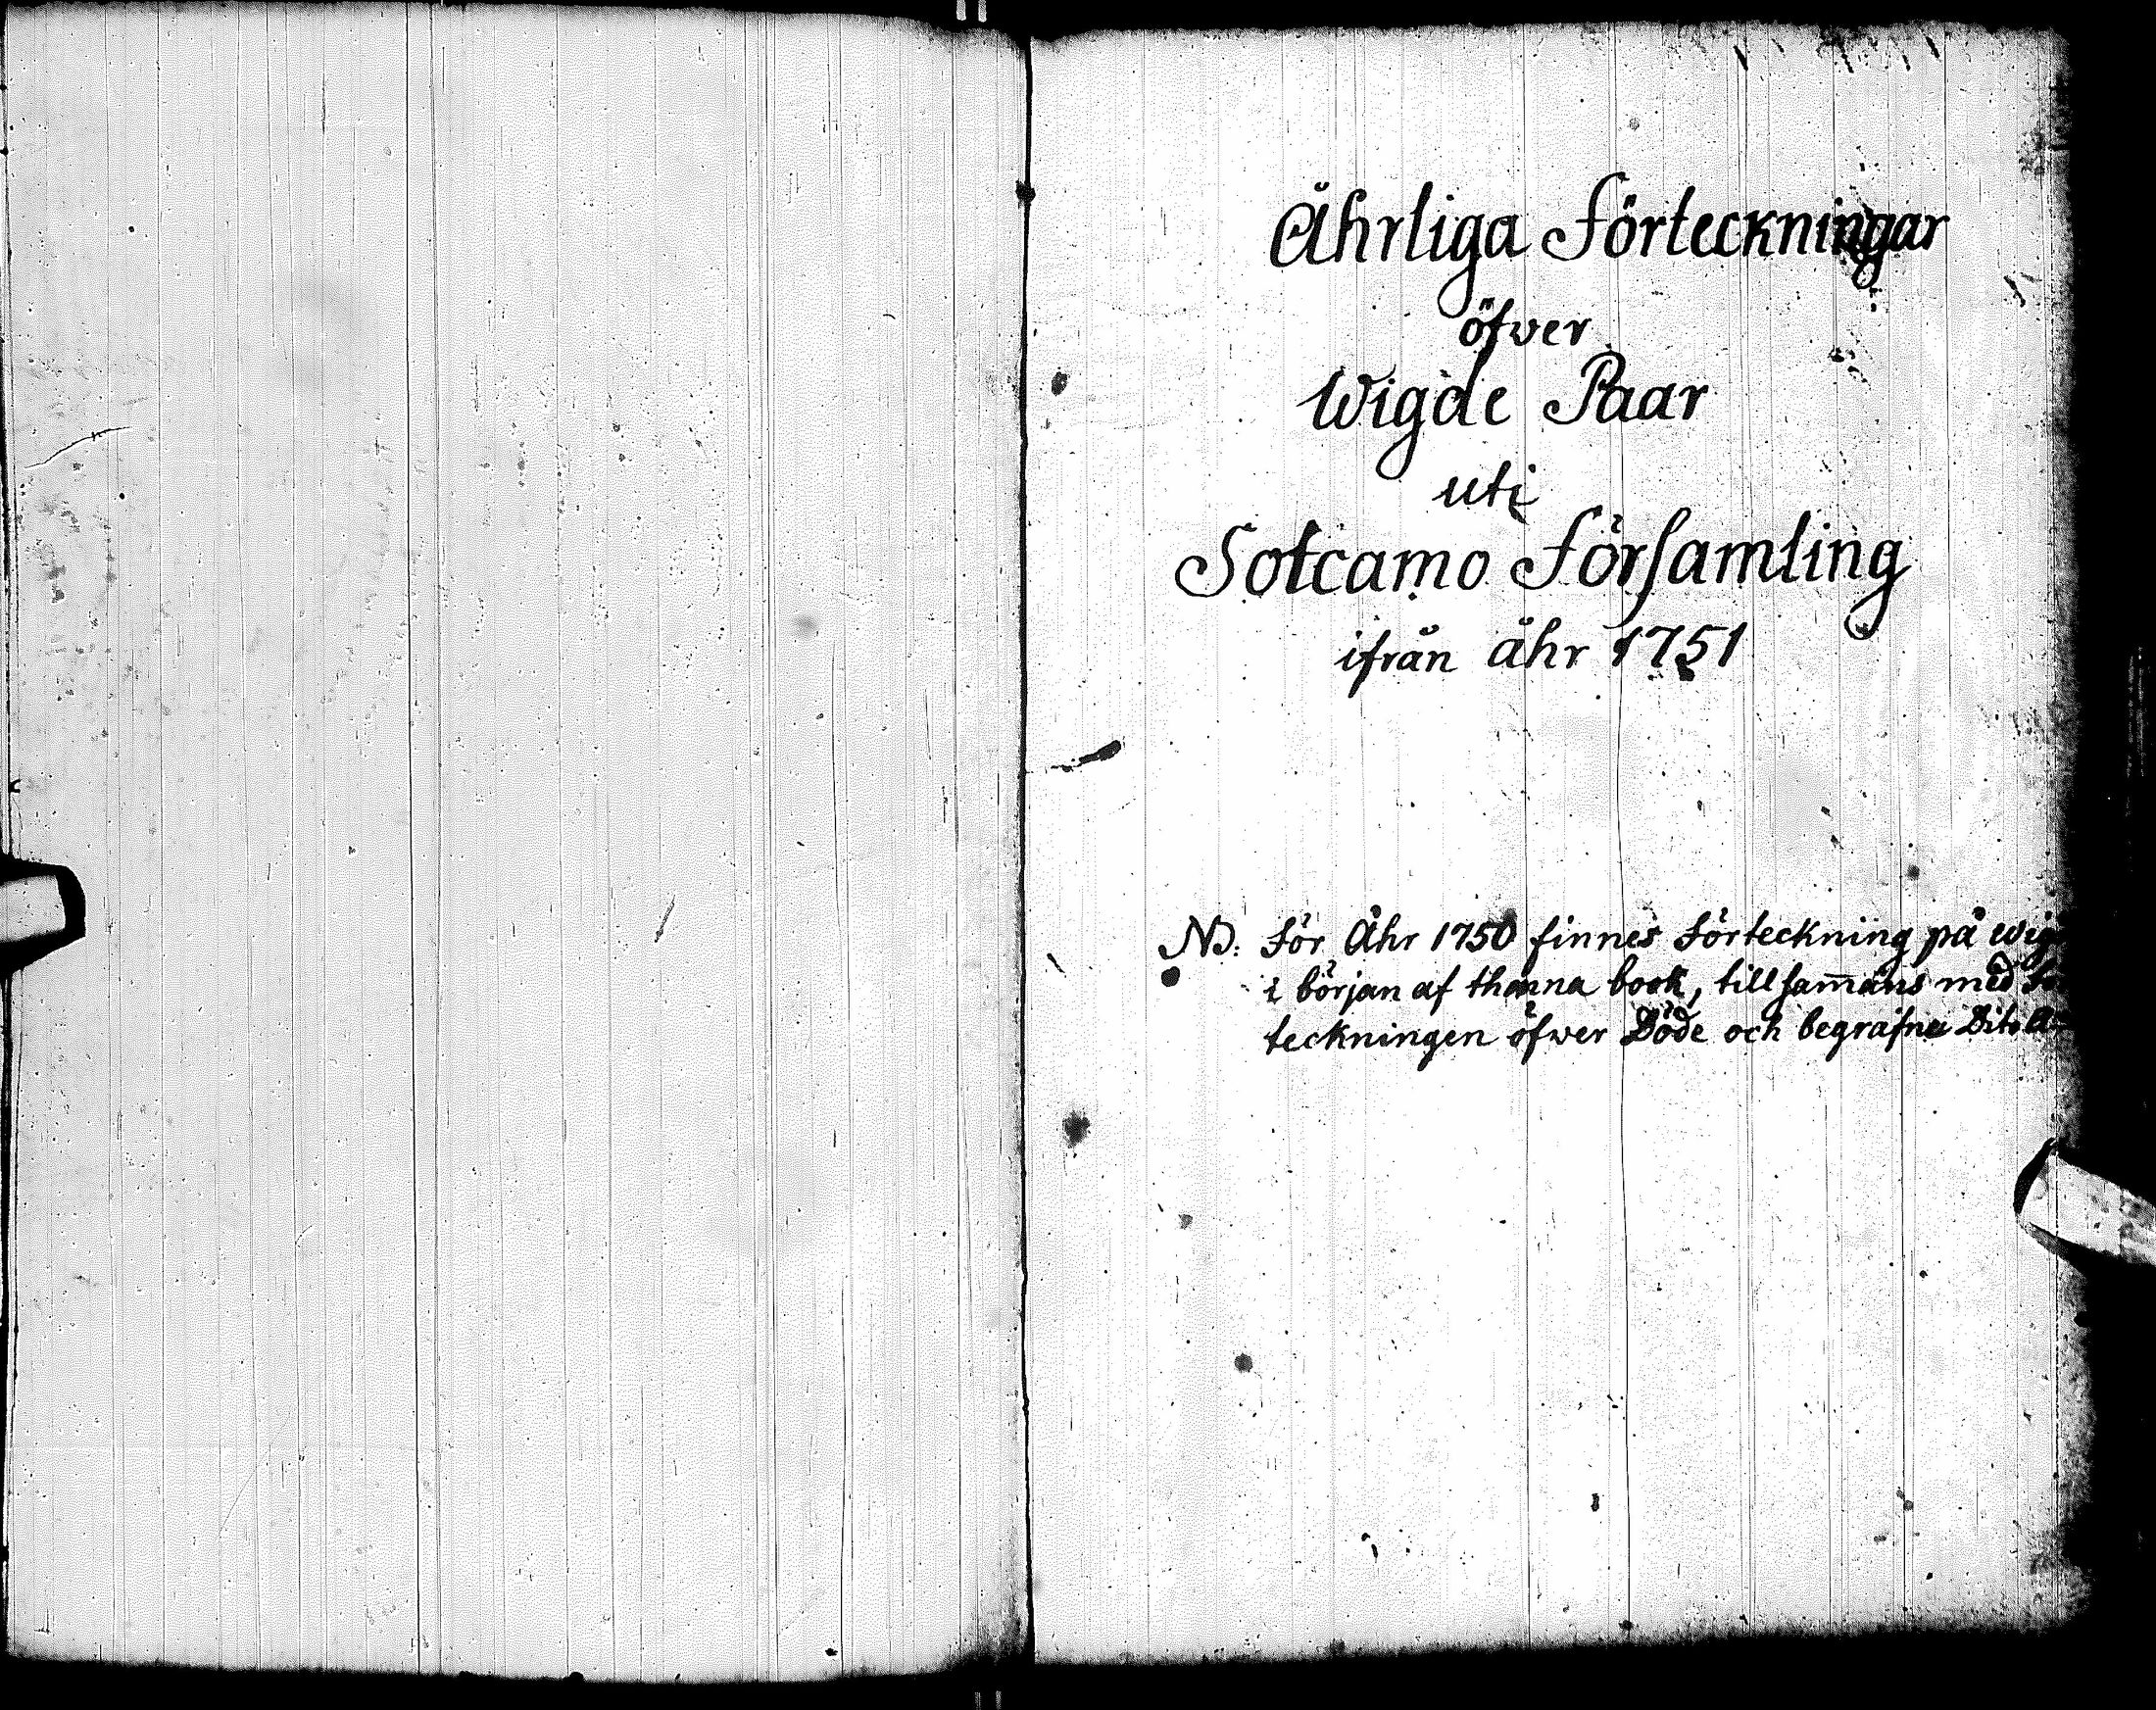 Åhrliga Förteckningar
öfwer
Wigde Paar
uti
Sotcamo Församling
ifrån åhr 1751
NB: För Åhr 1750 finnes Förteckning på wig
i början af thenna book, tillsam̅ans med
teckningen öfwer Döde och begrafne Dito